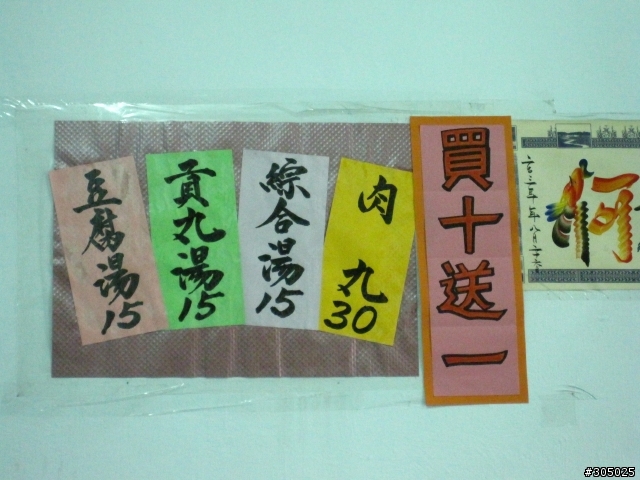 豆腐湯15
貢丸湯15
綜合湯15
肉丸30
買十送一
#305025